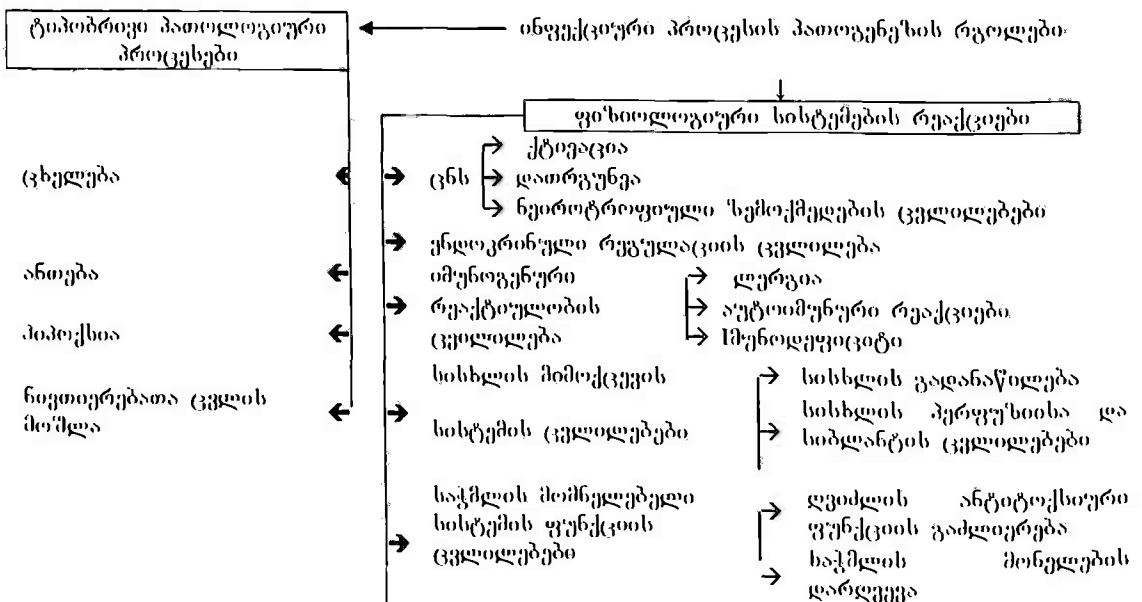 ტიპობრივი პათოლოგიური
პროცესები
ინფექციური პროცესის პათოგენეზის რგოლები
ფიზიოლოგიური სისტემების რეაქციები
ცხელება
ანთება
ჰიპოქსია
ნივთიერებათა ცვლის
მოშლა
ცნს
ქტივაცია
დათრგუნვა
ნეიროტროფიული ზემოქმედების ცვლილებები
ენდოკრინული რეგულაციის ცვლილება
იმუნოგენური
რეაქტიულობის
ცვილილება
ლერგია
აუტოიმუნური რეაქციები
იმუნოდეფიციტი
სისხლის მიმოქცევის
სისტემის ცვლილებები
სისხლის გადანაწილება
სისხლის პერფუზიისა და
სიბლანტის ცვლილებები
საჭმლის მომნელებელი
სისტემის ფუნქციის
ცვლილებები
ღვიძლის ანტიტოქსიური
ფუნქციის გაძლიერება
საჭმლის მონელების
დარღვევა